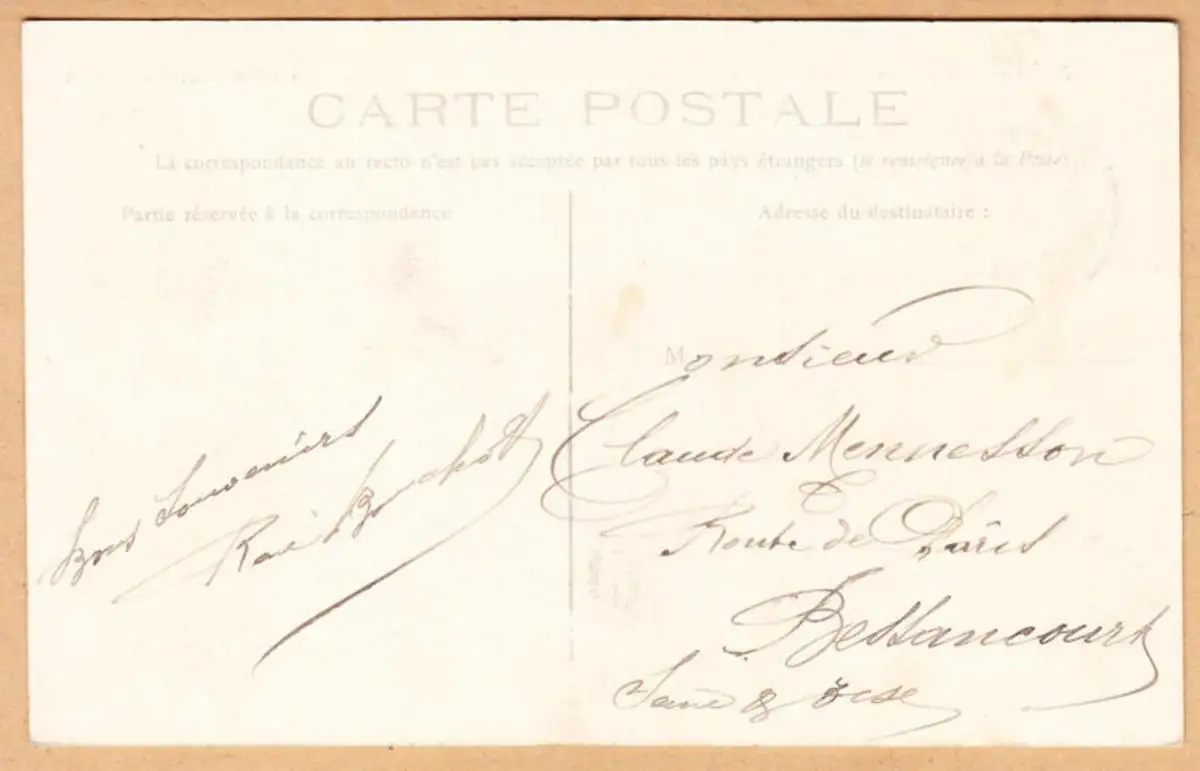 CARTE POSTALE
La correspondance au recto n'est pas acceptée par tous les pays étrangers (se renseigner à la Poste)
Partie réservée à la correspondance
Adresse du destinataire :
Bons Souvenirs
Monsieur
Claude Mennesson
Route de Paris
Bessancourt
Seine & Oise